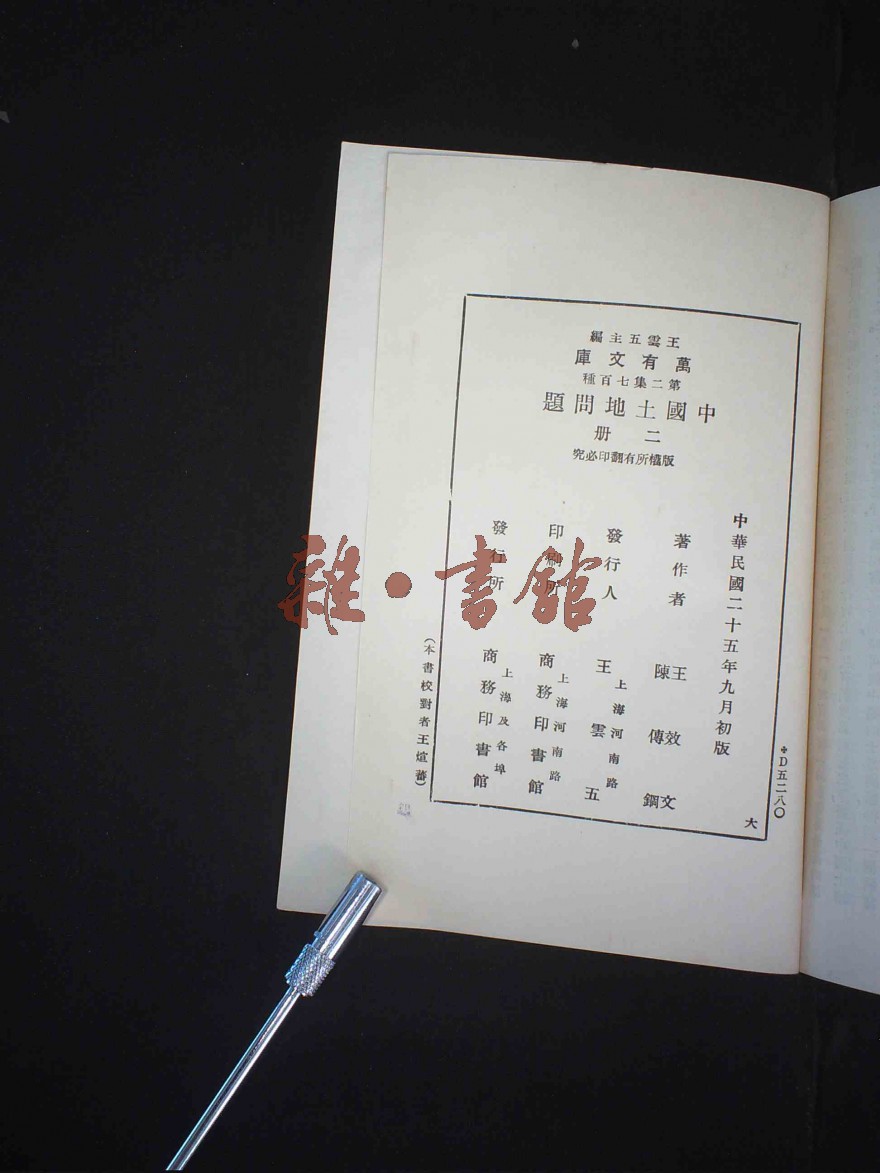 王雲五主編
萬有文庫
第二集七百種
中國土地問題
二册
版權所有翻印必究
中華民國二十五年九月初版
著作者 王效文 陳傳鋼
發行人 上海河南路 王雲五
印刷所 上海河南路 商務印書館
發行所 上海及各埠 商務印書館
(本書校對者王煊蕃)
D五二八〇
大
雜·書館